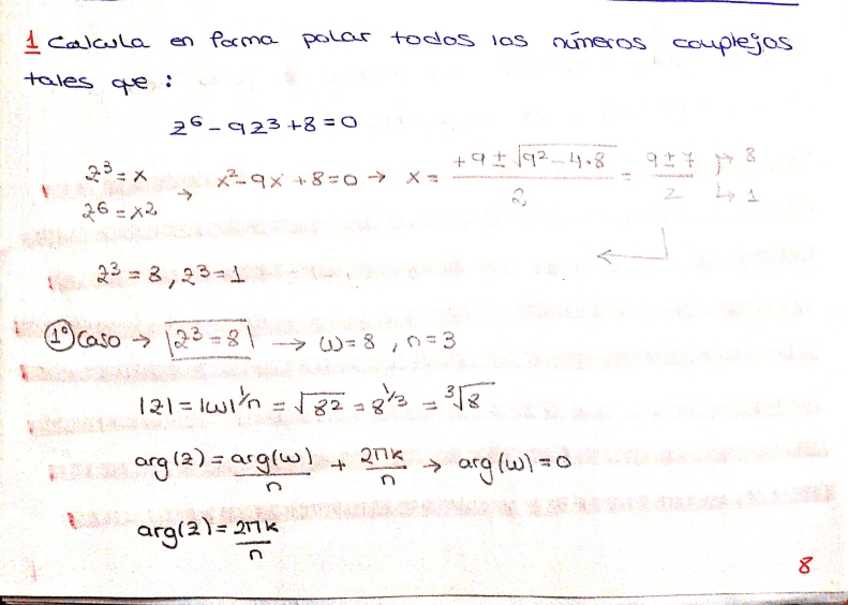 1 Calcula en forma polar todos los números complejos
tales que :
z⁶ - 9z³ + 8 = 0
z³ = x
z⁶ = x² → x² - 9x + 8 = 0 → x = (+9 ± √(9² - 4·8))/2 = (9 ± 7)/2 ↱ 8 ↳ 1
z³ = 8 , z³ = 1
1º Caso → |z³ = 8| → ω = 8 , n = 3
|z| = |ω|^(1/n) = √82 = 8^(1/3) = ³√8
arg(z) = arg(ω)/n + 2πk/n → arg(ω) = 0
arg(z) = 2πk/n
8